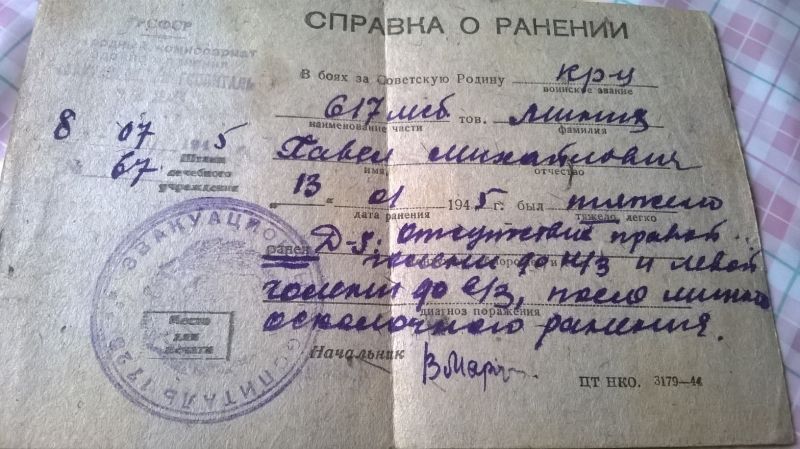 РСФСР
Народный комиссариат
СПРАВКА О РАНЕНИИ
В боях за Советскую Родину кр-ц
воинское звание
617 мсб тов.
наименование части фамилия
8 07 1945
№ 67.
Штамп
лечебного
учреждения
Павел Михайлович
имя, отчество
"13" 01 1945 г. был тяжело
дата ранения тяжело, легко
ранен Д-з: Отсутствие правой
голени до н/3 и левой
голени до с/3, после минно
диагноз поражения
осколочного ранения.
ЭВАКУАЦИОН
ГОСПИТАЛЬ
Место
для
печати
Начальник
ЦТ НКО. 3179—44